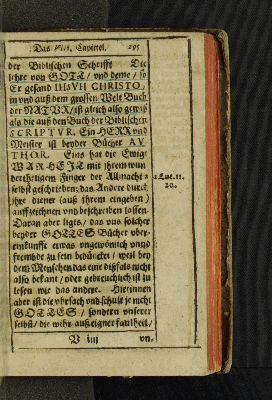 Das VIII. Capittel. 295
der Biblischen Schrifft. Die
lehre von GOTT/ vnd deme/ so
Er gesand IHSVH CHRISTO,
in vnd auß dem grossen Welt Buch
der NATVR/ ist gleich also gewiß
als die auß den Buch der Biblischen
SCRIPTVR. Ein HERR vnd
Meister ist beyder Bücher AV
THOR. Eins hat die Ewige
WARHEIT mit ihrem wun
derthetigem Finger der Allmacht
selbst geschrieben: das Andere durch
ihre diener (auß ihrem eingeben)
auffzeichnen vnd beschreiben lassen.
Daran aber ligts/ das vns solcher
beyder GOTTES Bücher vber-
einkunfft etwas vngewönlich vnnd
frembde zu sein bedüncket/ weil bey
dem Menschen das eine dißfals nicht
also bekant/ oder gebreuchlich ist zu
lesen wie das andere. Hierinnen
aber ist die vhrsach vnd schult je nicht
GOTTES/ sondern vnserer
selbst/ die wihr auß eigner faulheit/
V iiij vn-
a Luc. 11.
20.